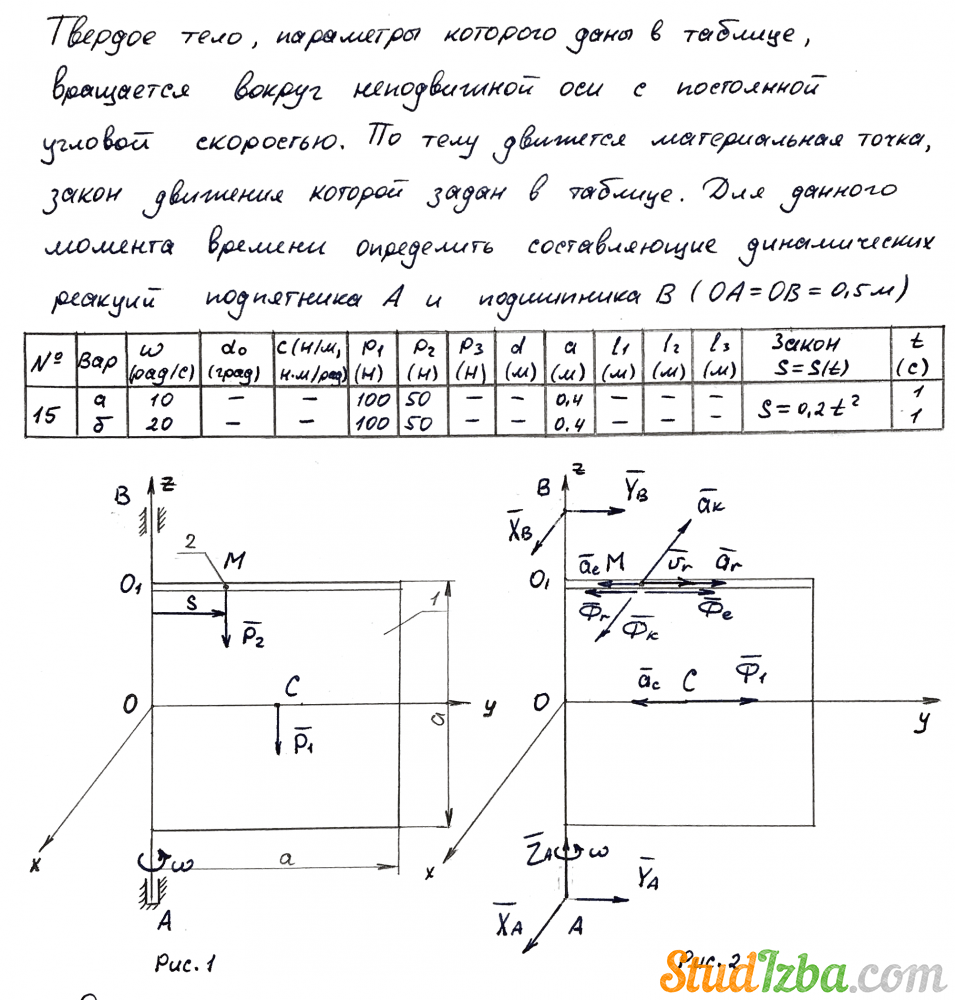 Твердое тело, параметры которого даны в таблице,
вращается вокруг неподвижной оси с постоянной
угловой скоростью. По телу движется материальная точка,
закон движения которой задан в таблице. Для данного
момента времени определить составляющие динамических
реакций подпятника А и подшипника В (ОА=ОВ=0,5м)
№ Вар ω (рад/с) α₀ (град) с(н/м, н.м/рад) P₁ (н) P₂ (н) P₃ (н) d (м) a (м) l₁ (м) l₂ (м) l₃ (м) Закон S=S(t) t (с)
15 а 10 – – 100 50 – – 0,4 – – – S=0,2t² 1
б 20 – – 100 50 – – 0.4 – – – 1
B z
2 M
O₁
S P̅₂ 1
C
O y
P̅₁ a
x
ω a
A
Рис. 1
B z Y̅B
X̅B a̅к
O₁ a̅e M v̅r a̅r
Ф̅r Ф̅к Ф̅e
a̅c C Ф̅₁
O y
x
Z̅A ω
Y̅A
X̅A A
Рис. 2
StudIzba.com